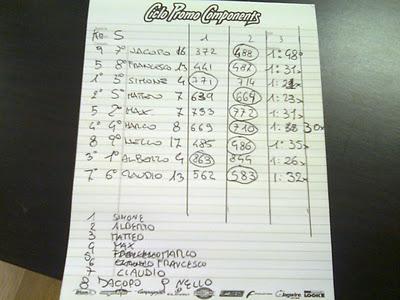 Ciclo Promo Components
1 2 3
9 7° JACOPO 16 372 488 1:48
5 8° FRANCESCO 13 441 481 1:31
1° 3° SIMONE 4 771 714 1:21
2° 5° MATTEO 7 639 664 1:23
5 2° MAX 7 733 772 1:31
4° 4° MARCO 8 669 710 1:38
8 9° NELLO 17 485 486 1:35
3° 1° ALBERTO 4 863 844 1:26
7° 6° CLAUDIO 13 562 583 1:32
1 SIMONE
2 ALBERTO
3 MATTEO
4 MAX
5 MARCO
6 FRANCESCO
7 CLAUDIO
8 JACOPO 9 NELLO
LOOKE